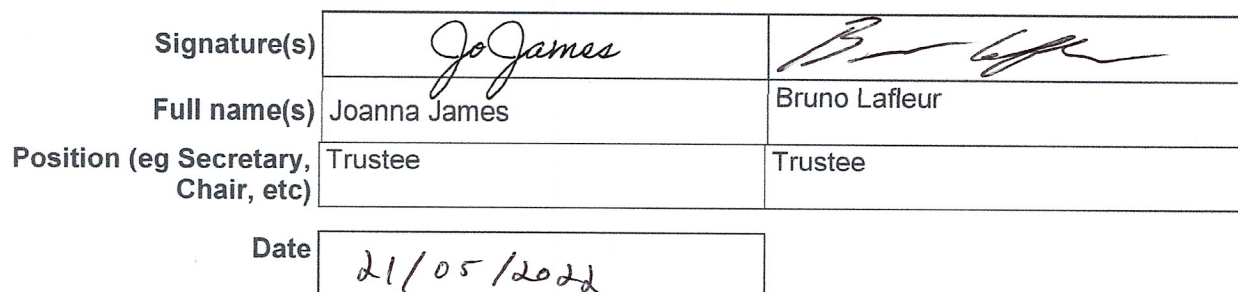 Signature(s) Jo James
Full name(s) Joanna James Bruno Lafleur
Position (eg Secretary, Trustee Trustee
Chair, etc)
Date 21/05/2022